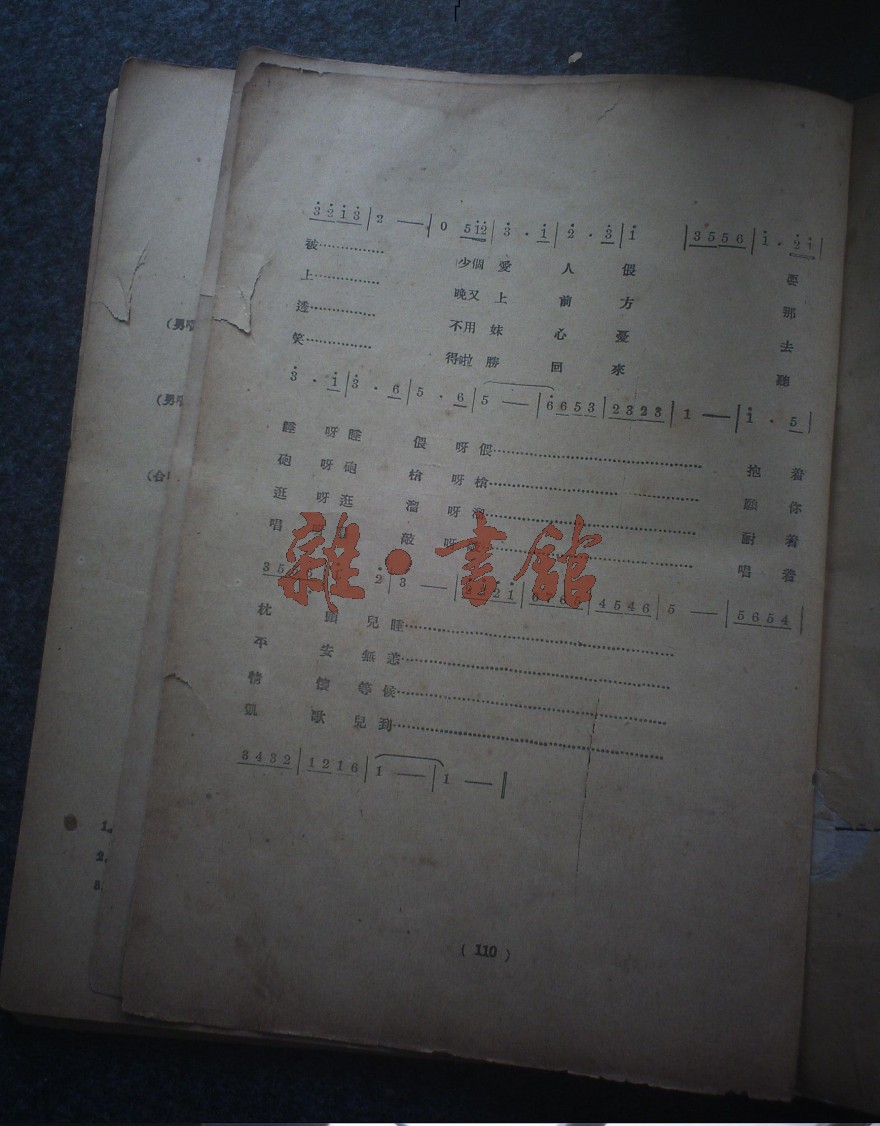 3̇ 2̇ 1̇ 3̇ | 2 — | 0 5 1̇ 2̇ | 3̇ · 1̇ | 2̇ · 3̇ | 1̇ | 3 5 5 6 | 1̇ · 2̇ 1̇ |
被………… 少個 愛 人 偎 要
上………… 晚又 上 前 方 那
透………… 不用 妹 心 憂 去
笑………… 得啦 勝 回 來 聽
3̇ · 1̇ | 3̇ · 6 | 5 · 6 | 5 — | 6̇ 6 5 3 | 2 3 2 3 | 1 — | 1̇ · 5 |
睡 呀 睡 偎 呀 偎………… 抱 着
砲 呀 砲 槍 呀 槍………… 願 你
逛 呀 逛 溜 呀 溜………… 耐 着
唱 敲 呀 唱 着
3 5 2̇ | 3 — | 2 2 2 1̇ | 4 5 4 6 | 5 — | 5 6 5 4 |
枕 頭 兒 睡…………
平 安 無 恙…………
情 懷 等 候…………
凱 歌 兒 到…………
3 4 3 2 | 1 2 1 6 | 1 — | 1 — ‖
( 110 )
(男
(男
(合
1.
2.
3.
雜·書館